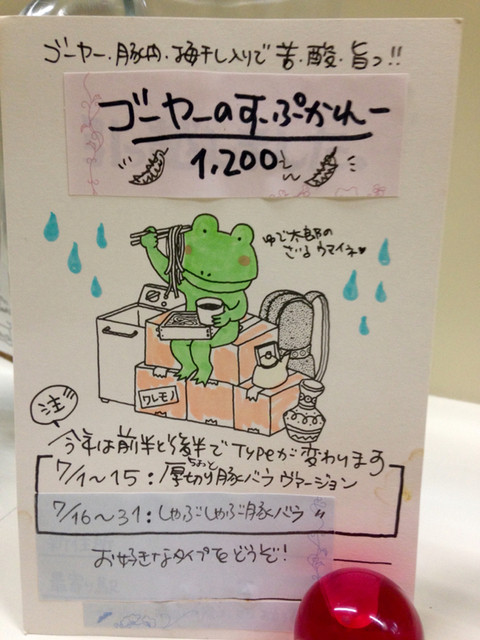 ゴーヤー・豚肉・梅干し入りで 苦・酸・旨っ!!
ゴーヤーのすーぷかれー
1,200えん
ゆで太郎の
ざるウマイネ♥
ワレモノ
注
今年は前半と後半でTypeが変わります
7/1〜15：厚切り豚バラ ヴァージョン
ちょっと
7/16〜31：しゃぶしゃぶ豚バラ 〃
お好きなタイプをどうぞ！